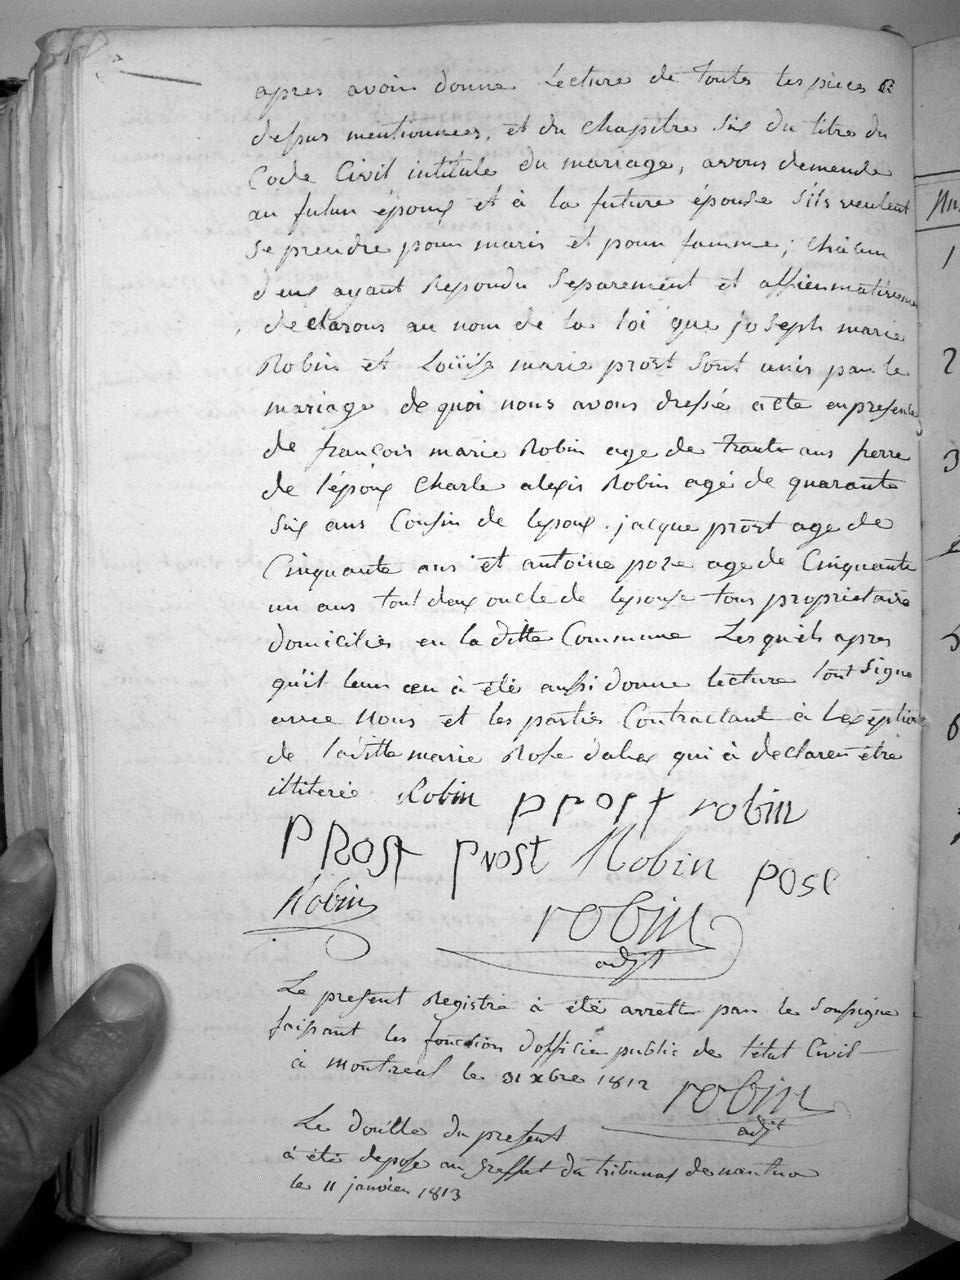 apres avoir donne Lecture de toutes les pieces
depus mentionnees, et du chapitre Six du titre du
Code Civil intitule du mariage, avons demende
au futur époux et à la future épouse S'ils veulent
Se prendre pour maris et pour famme; chacun
deux ayant Repondu Separement et affiermativeme
declarons au nom de la loi que joseph marie
Robin et Loüise marie prost Sont unis par le
mariage de quoi nous avons dressé acte en presence
de françois marie Robin age de trante ans frerre
de l'époux Charle alexis Robin agé de quarante
Six ans Cousin de lepoux. jacque prost age de
Cinquante ans et antoine poze age de Cinquante
un ans tout deux oncle de lepouse tous proprietaire
domiciliés en la ditte Commune Lesquels apres
qu'il leur en à été aussi donne lecture tout Signe
avec Nous et les parties Contractant à Lexeption
de laditte marie Rose qui à declarer être
illiterée. Robin prost robin
PRost prost Robin pose
Robin robin
adjt
Le present Registre à été arrette par le Soussigne
faisant les fonction dofficie public de l'état Civil
à montreal le 31 xbre 1812 robin
adjt
Le double du present
à été depose au greffet du tribunal de nantua
le 11 janvier 1813
1
2
3
5
6